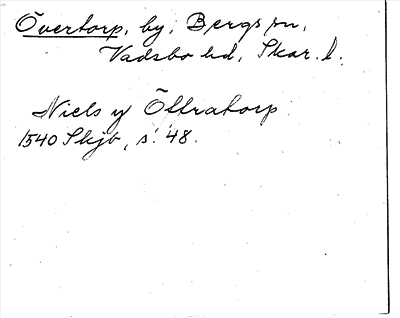 Övertorp, by, Bergs sn,
Vadsbo hd, Skar. l.
Niels y Öffratorp
1540 Skjb, s. 48.